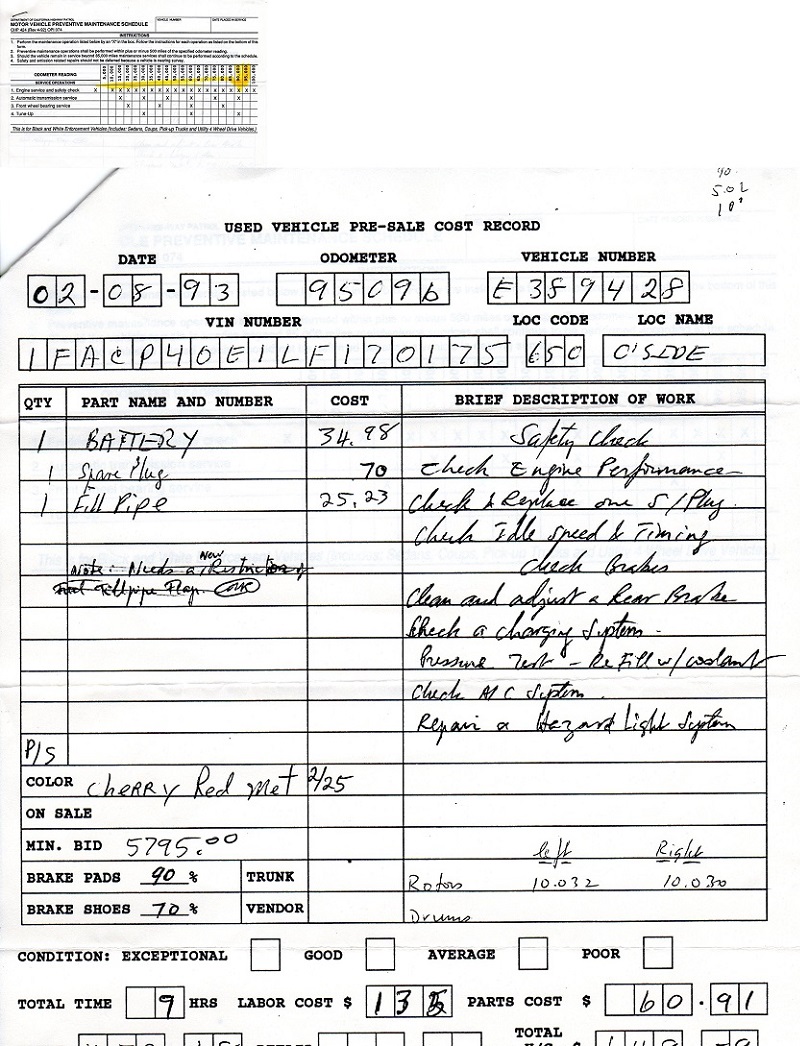 DEPARTMENT OF CALIFORNIA HIGHWAY PATROL
MOTOR VEHICLE PREVENTIVE MAINTENANCE SCHEDULE
VEHICLE NUMBER
DATE PLACED IN SERVICE
INSTRUCTIONS
1. Perform the maintenance operation listed below by an "X" in the box. Follow the instructions for each operation as listed on the bottom of this form.
2. Preventive maintenance operations shall be performed within plus or minus 500 miles of the specified odometer reading.
ODOMETER READING
SERVICE OPERATIONS
1. Engine service and safety check
2. Automatic transmission service
3. Front wheel bearing service
4. Tune-Up
This is for Black and White Enforcement Vehicles (Includes: Sedans, Coups, Pick-up Trucks and Utility 4 Wheel Drive Vehicles.)
USED VEHICLE PRE-SALE COST RECORD
DATE ODOMETER VEHICLE NUMBER
02-08-93 95096 E389428
VIN NUMBER LOC CODE LOC NAME
1FACP40E1LF170175 650 O'SIDE
QTY PART NAME AND NUMBER COST BRIEF DESCRIPTION OF WORK
1 BATTERY 34.98 Safety Check
1 Spare Plug 70 Check Engine Performance
1 Fill Pipe 25.23 Check & Replace one S/Plug
Check Idle Speed & Timing
Note: Needs a New Restrictor Check Brakes
Clean and adjust a Rear Brake
Check a charging System.
Pressure Test - Refill w/ coolant
Check A/C System.
Repair a Hazard Light System
P/S
COLOR Cherry Red Met 2/25
ON SALE
MIN. BID 5795.00 left Right
BRAKE PADS 90 % TRUNK Rotors 10.032 10.030
BRAKE SHOES 70 % VENDOR Drums
CONDITION: EXCEPTIONAL GOOD AVERAGE POOR
TOTAL TIME 9 HRS LABOR COST $ 135 PARTS COST $ 60.91
TOTAL